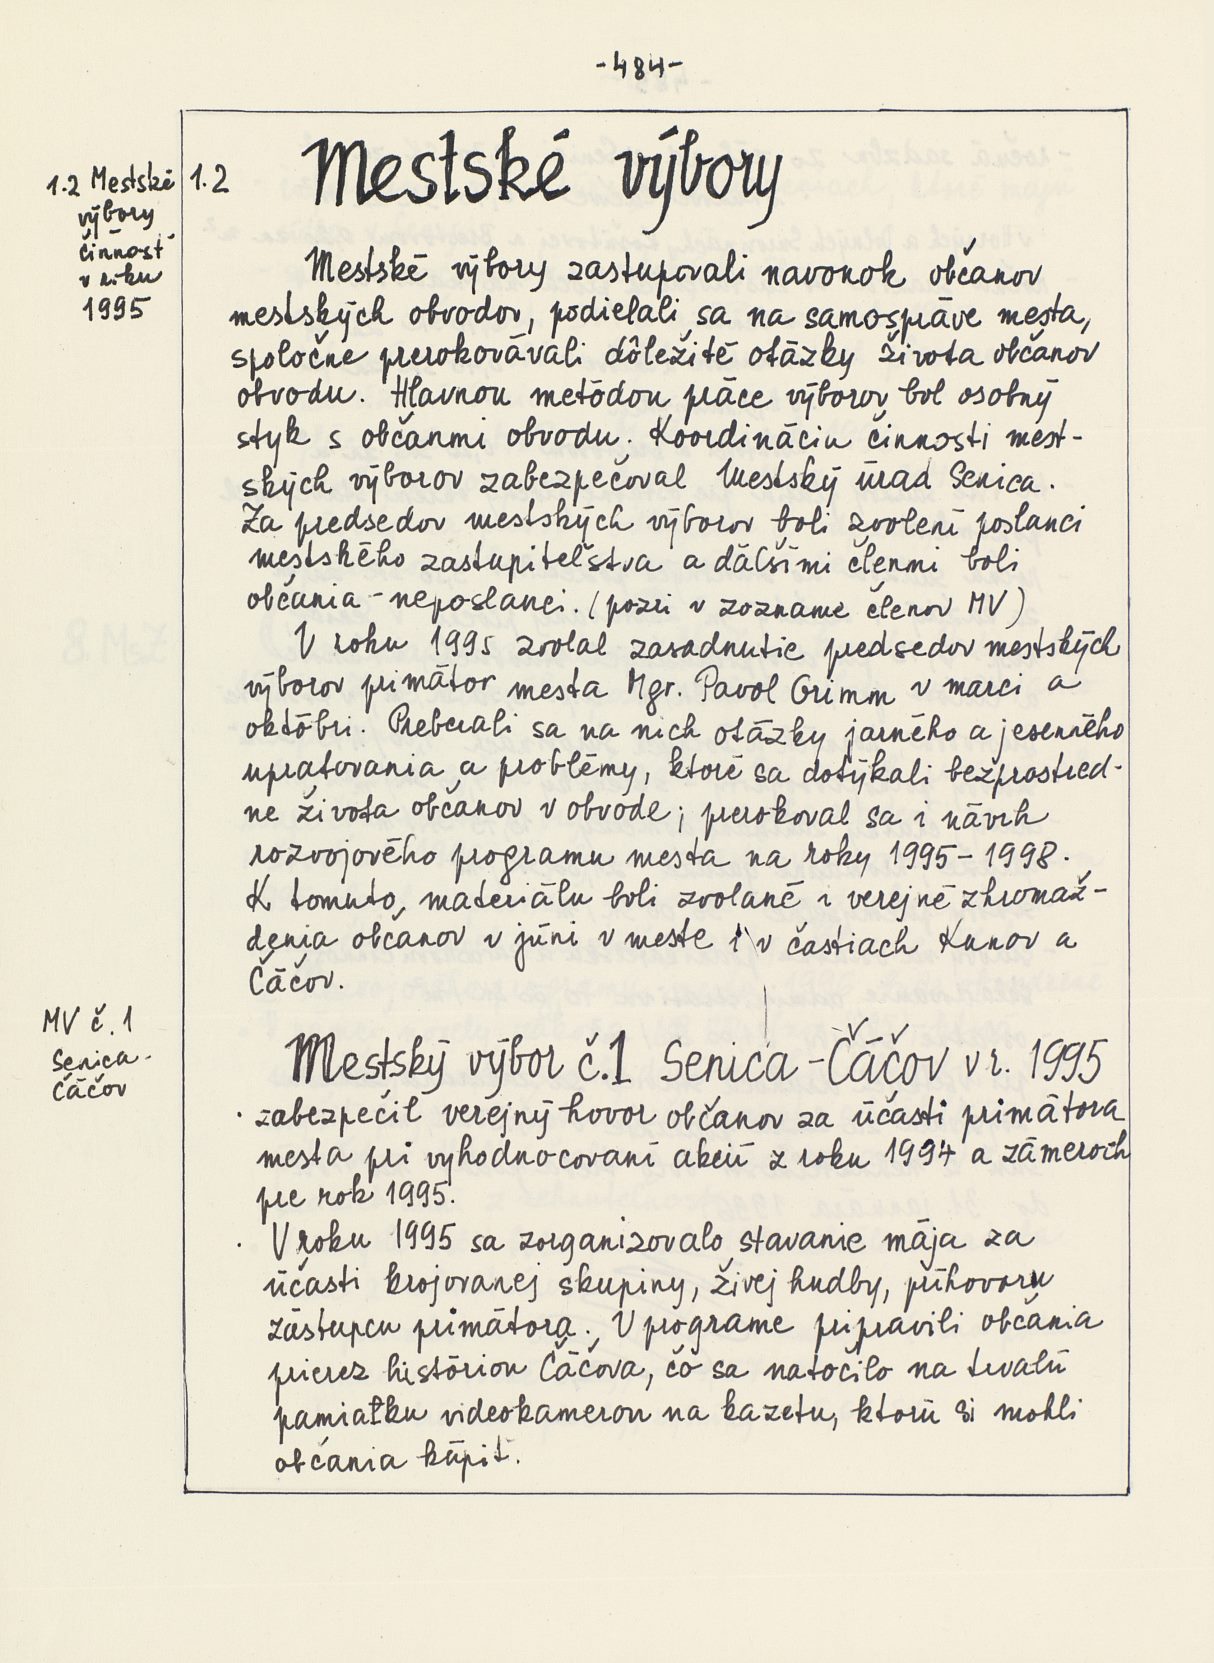 -484-
1.2 Mestské
výbory
činnosť
v roku
1995
1.2 Mestské výbory
Mestské výbory zastupovali navonok občanov
mestských obvodov, podieľali sa na samospráve mesta,
spoločne prerokovávali dôležité otázky života občanov
obvodu. Hlavnou metódou práce výborov bol osobný
styk s občanmi obvodu. Koordináciu činnosti mest-
ských výborov zabezpečoval Mestský úrad Senica.
Za predsedov mestských výborov boli zvolení poslanci
mestského zastupiteľstva a ďalšími členmi boli
občania - neposlanci. (pozri v zozname členov MV)
V roku 1995 zvolal zasadnutie predsedov mestských
výborov primátor mesta Mgr. Pavol Grimm v marci a
októbri. Preberali sa na nich otázky jarného a jesenného
upratovania a problémy, ktoré sa dotýkali bezprostred-
ne života občanov v obvode; prerokoval sa i návrh
rozvojového programu mesta na roky 1995-1998.
K tomuto materiálu boli zvolané i verejné zhromaž-
denia občanov v júni v meste i v častiach Kunov a
Čáčov.
MV č. 1
Senica-
Čáčov
Mestský výbor č.1 Senica - Čáčov v r. 1995
· zabezpečil verejný hovor občanov za účasti primátora
mesta pri vyhodnocovaní akcií z roku 1994 a zámeroch
pre rok 1995.
· V roku 1995 sa zorganizovalo stavanie mája za
účasti krojovanej skupiny, živej hudby, príhovoru
zástupcu primátora. V programe pripravili občania
prierez históriou Čáčova, čo sa natočilo na trvalú
pamiatku videokamerou na kazetu, ktorú si mohli
občania kúpiť.